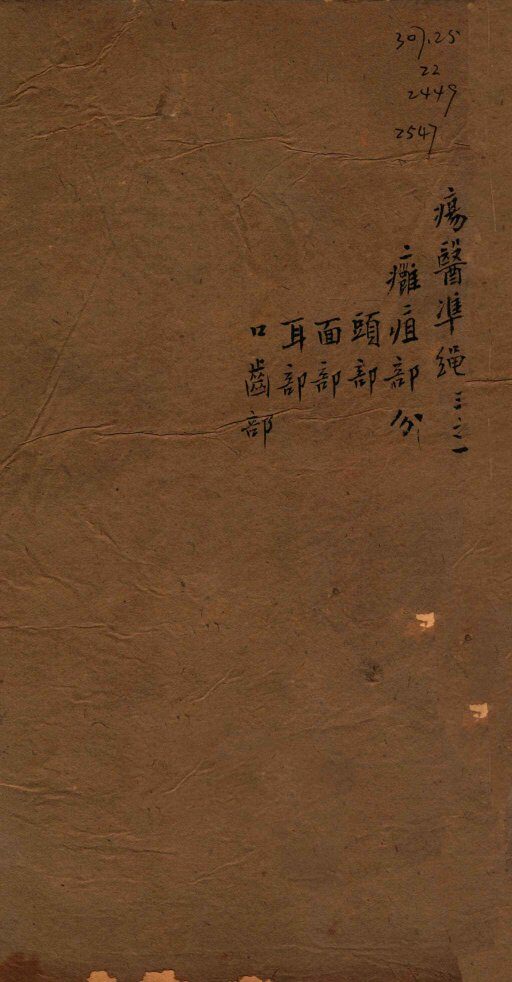 307.25
22
2449
2547
瘍醫準繩 三之一
二癰疽部分
頭部
面部
耳部
口齒部